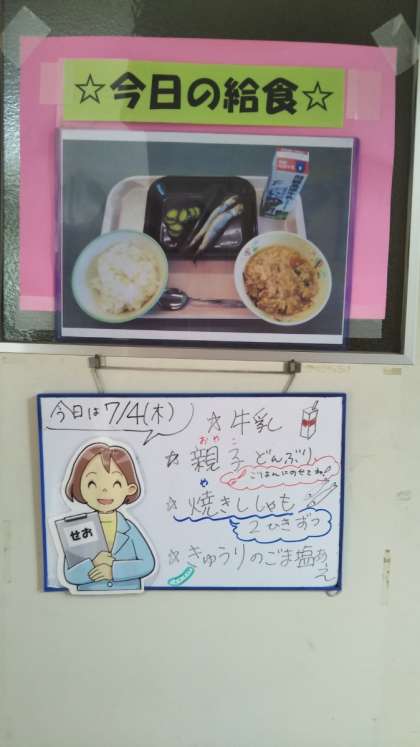 ☆今日の給食☆
今日は7/4(木)
☆牛乳
おや こ
☆親子どんぶり
ごはんにのせてね!
や
☆焼きししゃも
2ひきずつ
☆きゅうりのごま塩あえ
せお